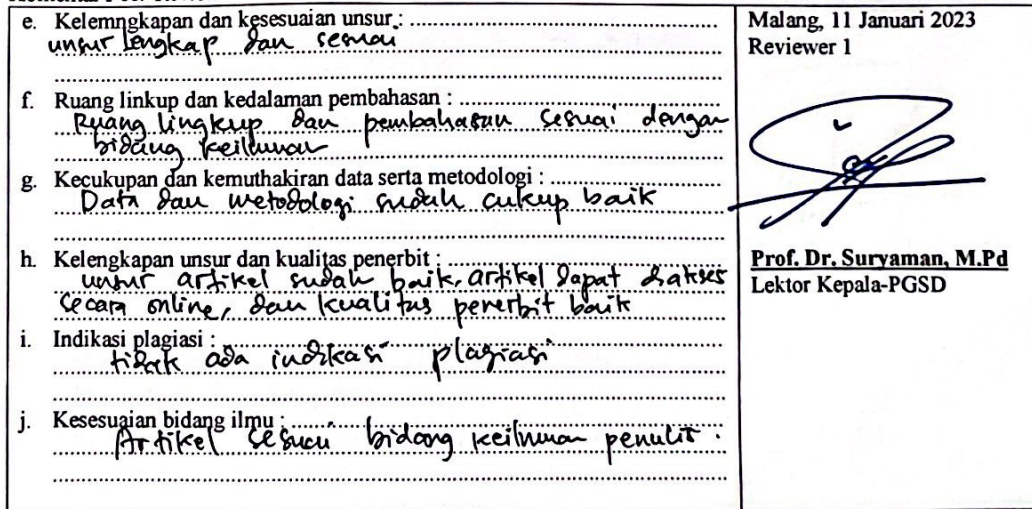 e. Kelemngkapan dan kesesuaian unsur :
unsur lengkap dan sesuai
f. Ruang linkup dan kedalaman pembahasan :
Ruang lingkup dan pembahasan sesuai dengan
bidang keilmuan
g. Kecukupan dan kemuthakiran data serta metodologi :
Data dan metodologi sudah cukup baik
h. Kelengkapan unsur dan kualitas penerbit :
unsur artikel sudah baik, artikel dapat diakses
secara online, dan kualitas penerbit baik
i. Indikasi plagiasi :
tidak ada indikasi plagiasi
j. Kesesuaian bidang ilmu :
Artikel sesuai bidang keilmuan penulis.
Malang, 11 Januari 2023
Reviewer 1
Prof. Dr. Suryaman, M.Pd
Lektor Kepala-PGSD